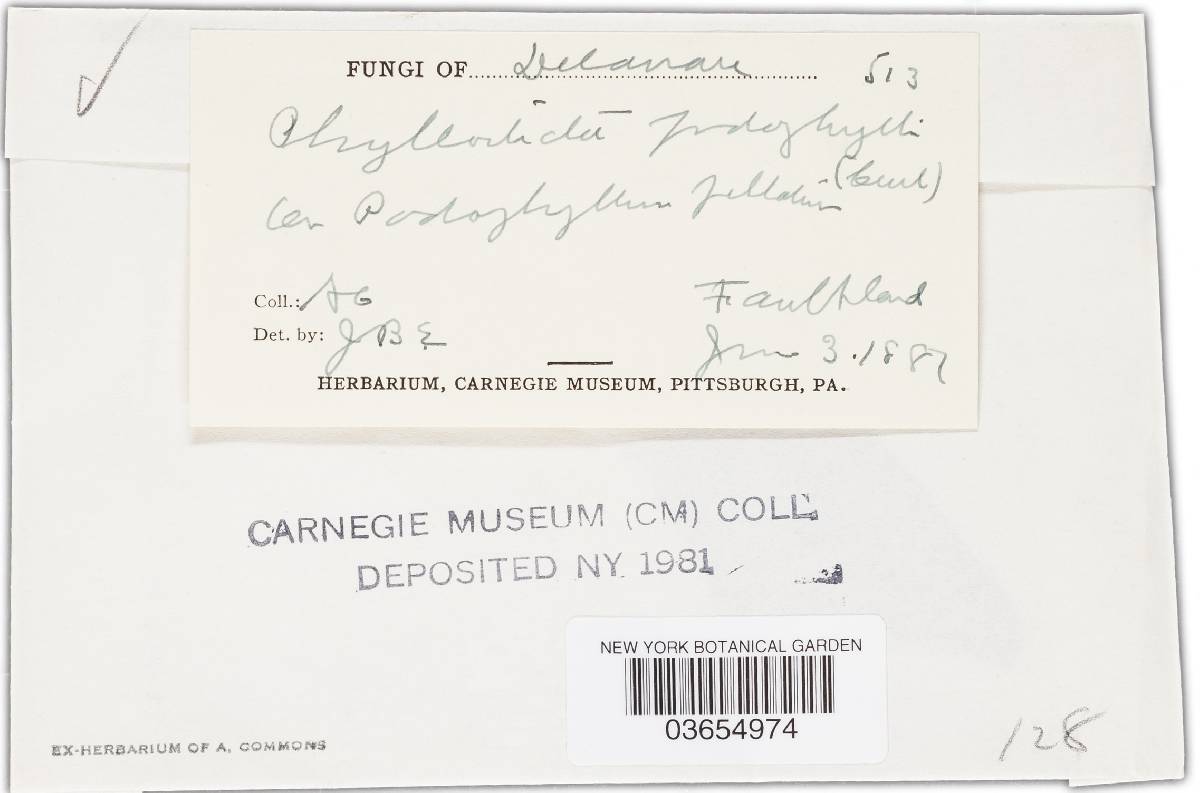 FUNGI OF Delaware 513
Phyllosticta podophylli
(Curt)
on Podophyllum peltatum
Coll.: AC Faulkland
Det. by: JBE June 3. 1887
HERBARIUM, CARNEGIE MUSEUM, PITTSBURGH, PA.
CARNEGIE MUSEUM (CM) COLL.
DEPOSITED NY 1981
NEW YORK BOTANICAL GARDEN
03654974
EX-HERBARIUM OF A. COMMONS
128